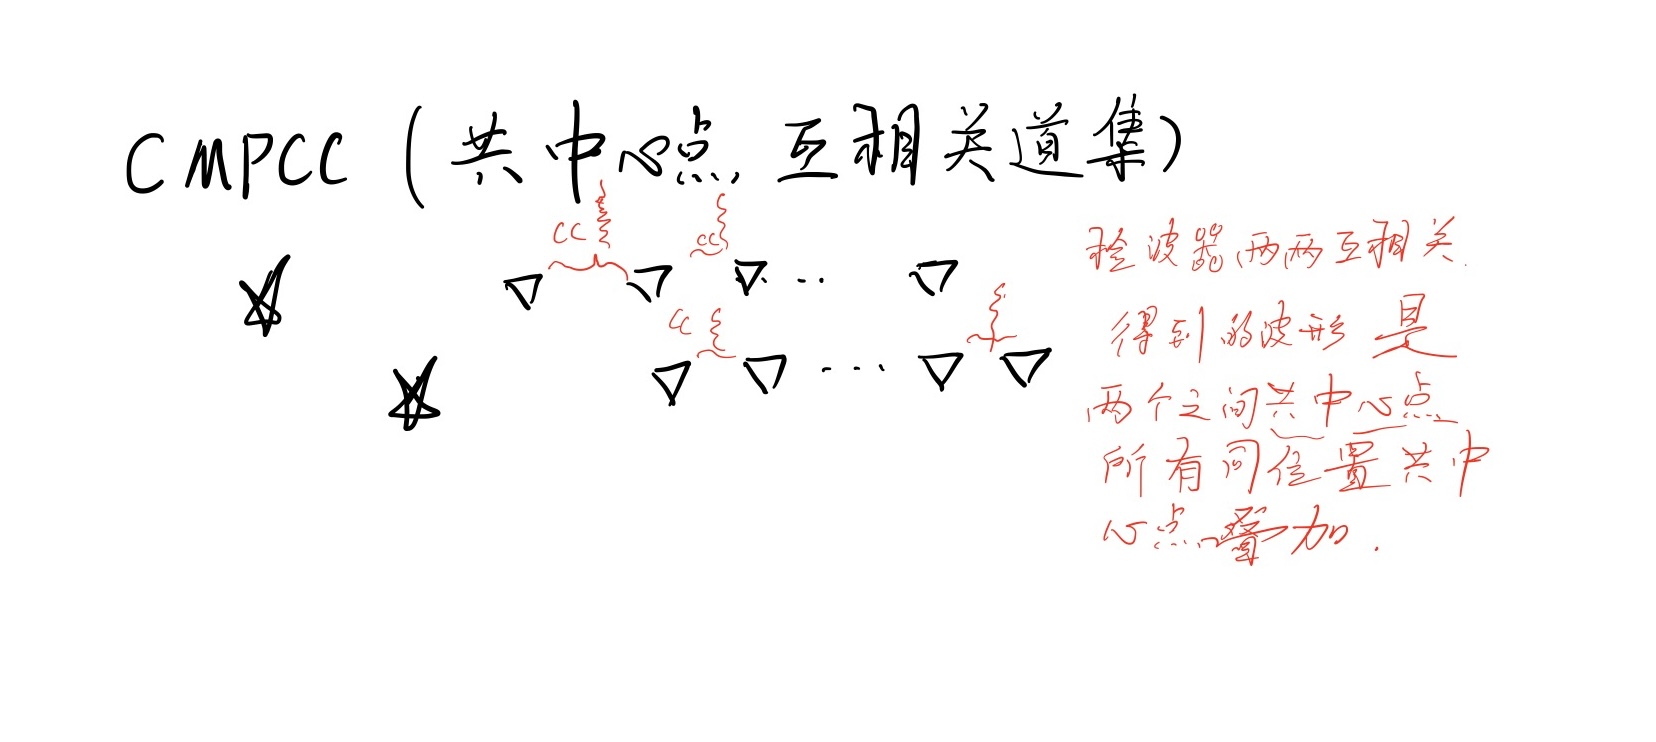 CMPCC (共中心点互相关道集)
CC
CC
CC
检波器两两互相关.
得到的波形是
两个之间共中心点
所有同位置共中
心点叠加.